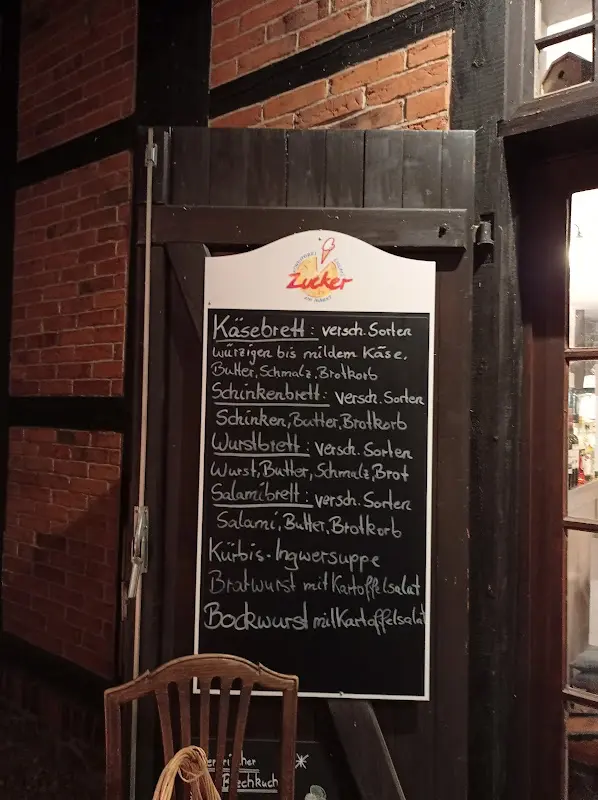 Zucker
Käsebrett: versch. Sorten
würzigen bis mildem Käse,
Butter, Schmalz, Brotkorb
Schinkenbrett: versch. Sorten
Schinken, Butter, Brotkorb
Wurstbrett: versch. Sorten
Wurst, Butter, Schmalz, Brot
Salamibrett: versch. Sorten
Salami, Butter, Brotkorb
Kürbis-Ingwersuppe
Bratwurst mit Kartoffelsalat
Bockwurst mit Kartoffelsalat